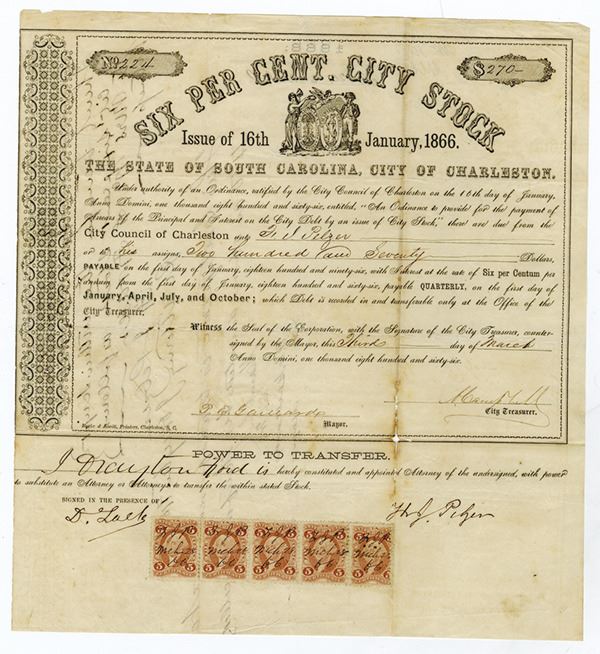 No 224
$270-
SIX PER CENT. CITY STOCK
Issue of 16th January, 1866.
THE STATE OF SOUTH CAROLINA, CITY OF CHARLESTON.
Under authority of an Ordinance, ratified by the City Council of Charleston on the 16th day of January,
Anno Domini, one thousand eight hundred and sixty-six, entitled, "An Ordinance to provide for the payment of
Arrears of the Principal and Interest on the City Debt by an issue of City Stock," there are due from the
City Council of Charleston unto F. J. Pelzer
or to his assigns, Two hundred and Seventy Dollars,
PAYABLE on the first day of January, eighteen hundred and ninety-six, with Interest at the rate of Six per Centum per
annum from the first day of January, eighteen hundred and sixty-six, payable QUARTERLY, on the first day of
January, April, July, and October; which Debt is recorded in and transferable only at the Office of the
City Treasurer.
Witness the Seal of the Corporation, with the Signature of the City Treasurer, counter-
signed by the Mayor, this Third day of March
Anno Domini, one thousand eight hundred and sixty-six.
P. C. Gaillard
Mayor.
City Treasurer.
Printers, Charleston, S. C.
POWER TO TRANSFER.
J Drayton Ford is hereby constituted and appointed Attorney of the undersigned, with power
to substitute an Attorney or Attorneys to transfer the within stated Stock.
SIGNED IN THE PRESENCE OF
F. J. Pelzer
5 5 5 5 5 5 5 5 5 5